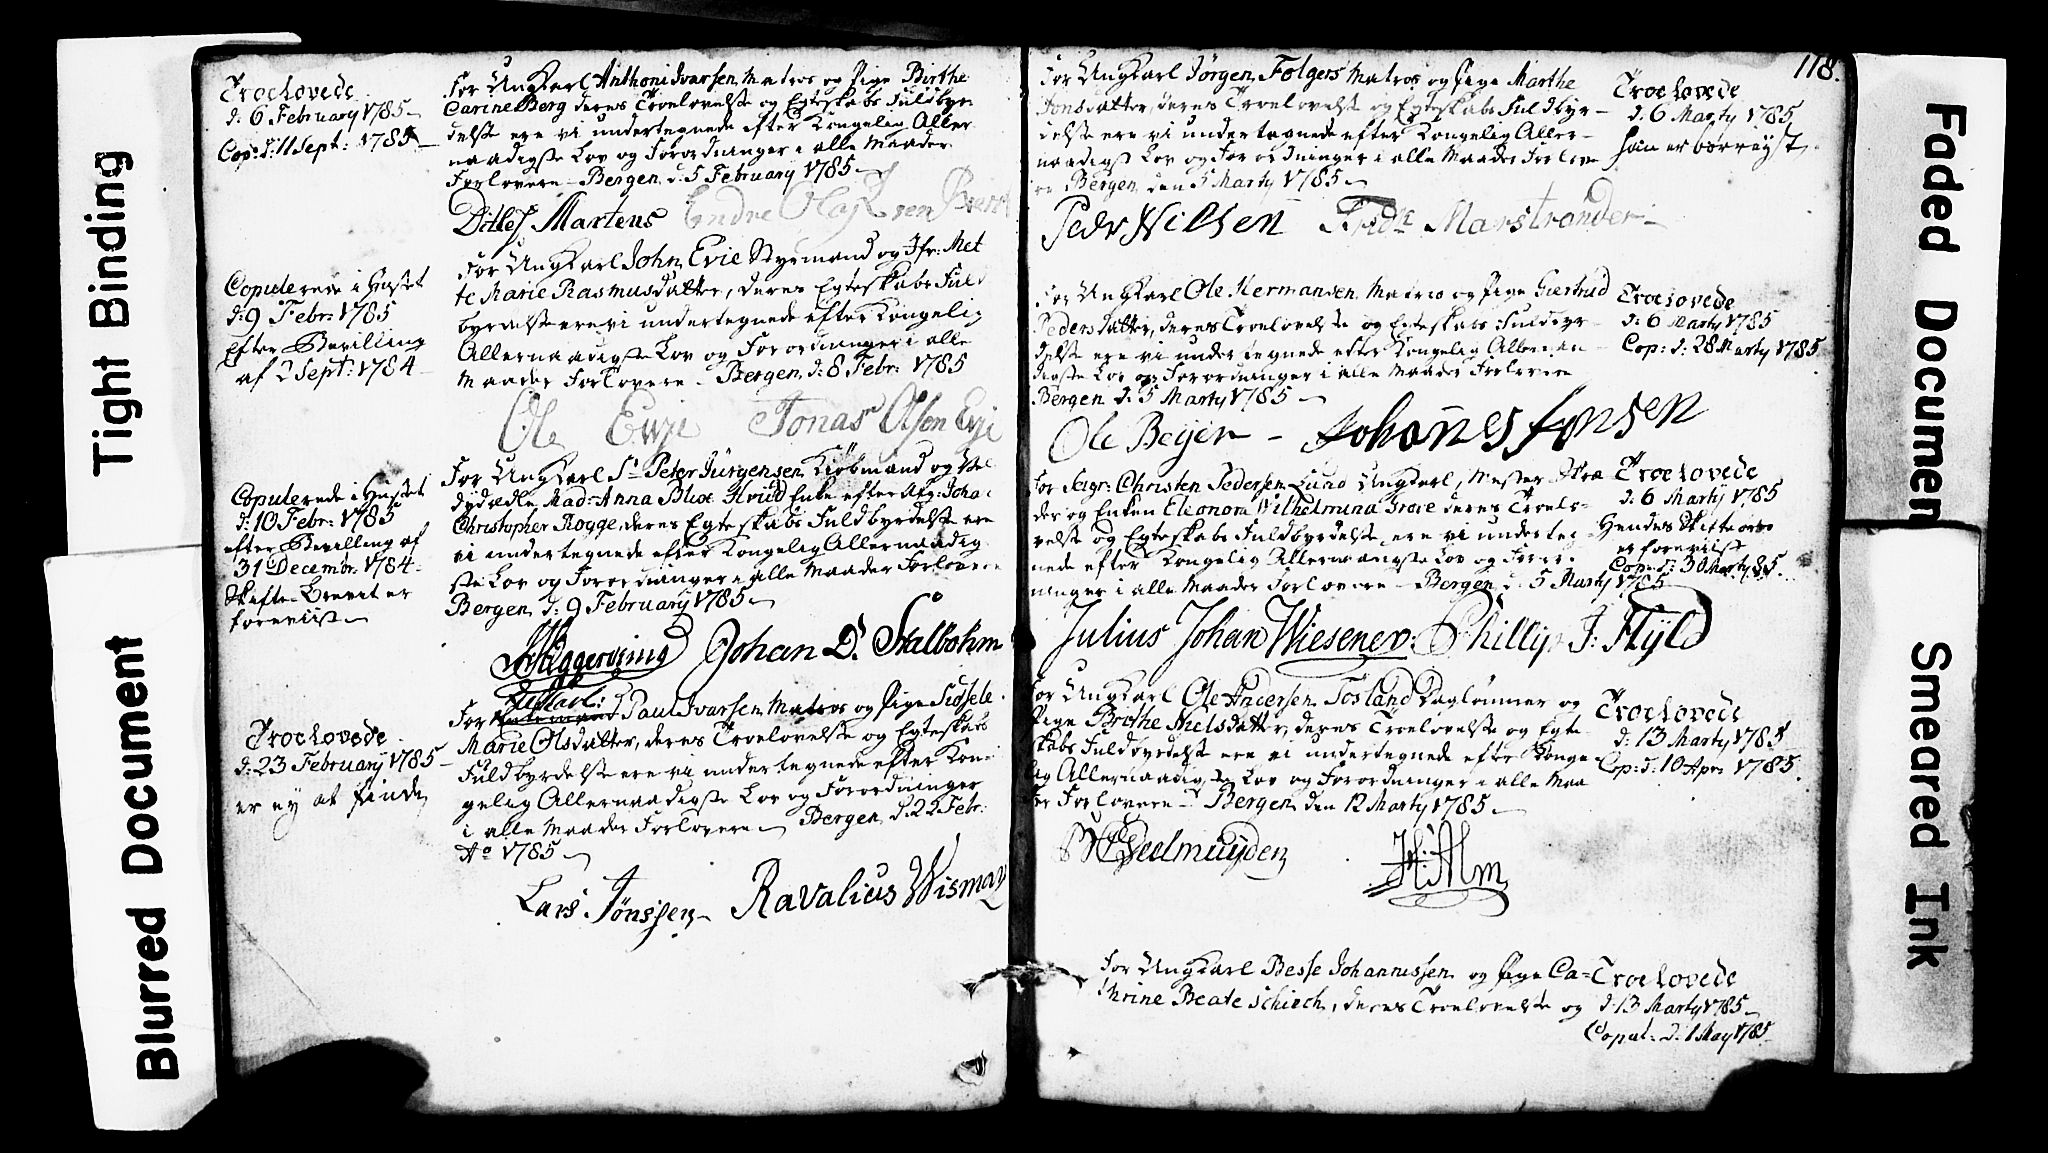 Troelovede
d: 6 February 1785
Cop: d: 11 Sept: 1785
For Ungkarl Anthoni Ivarsen Matros og Pige Birthe
Carine Berg deres Troelovelse og Egteskabs Fuldbyr
delse ere vi undertegnede efter Kongelig Aller
naadigste Lov og Forordninger i alle Maader
Forlovere – Bergen d: 5 February 1785
Ditlef Martens Endre Olas
Copulerede i Huset
d: 9 Febr: 1785
efter Bevilling
af 2 Sept: 1784
For Ungkarl John Evie Styrmand og Jfr: Met
te Marie Rasmusdatter, deres Egteskabs Fuld
byrdelse ere vi undertegnede efter Kongelig
Allernaadigste Lov og Forordninger i alle
Maader Forlovere – Bergen d: 8 Febr: 1785
Ole Evje Jonas Olsen Evje
Copulerede i Huset
d: 10 Febr: 1785
efter Bevilling af
31 Decembr: 1784
Skifte Brevet er
foreviist
For Ungkarl Sr Peter Jürgensen Kiøbmand og Vel
dydædle Mad: Anna Blix Hviid Enke efter Joha
Christopher Rogge, deres Egteskabs Fuldbyrdelse ere
vi undertegnede efter Kongelig Allernaadig
ste Lov og Forordninger i alle Maader Forlovere
Bergen d: 9 February 1785
Johan D. Stalbohm
Troelovede
d: 23 February 1785
er ey at finde
For Ungkarl: Paul Ivarsen Matros og Pige Sidsele
Marie Olsdatter, deres Troelovelse og Egteskabs
Fuldbyrdelse ere vi undertegnede efter Kon
gelig Allernaadigste Lov og Forordninger
i alle Maader Forlovere – Bergen d: 22 Febr:
Ao 1785
Lars Jønssen Ravalius Wismar
118.
For Ungkarl Jörgen Folgers Matros og Pige Marthe
Jonsdatter, deres Troelovelse og Egteskabs Fuldbyr-
delse ere vi undertegnede efter Kongelig Aller-
naadigst Lov og Forordninger i alle Maader Forlove
re Bergen den 5 Marty 1785
Peder Nilsen Fridr Marstrander
Troelovede
d. 6 Marty 1785
han er bortreyst
For Ungkarl Ole Hermansen Matros og Pige Giertrud
Pedersdatter, deres Troelovelse og Egteskabs Fuldbyr-
delse ere vi undertegnede efter Kongelig Allernaa-
digste Lov og Forordninger i alle Maader Forlovere
Bergen d: 5 Marty 1785
Ole Beyer – Johannes Jonsen
Troelovede
d: 6 Marty 1785
Cop: d: 28 Marty 1785
For Seigr: Christen Pedersen Lund Ungkarl, Mester Skræ
der og Enken Eleonora Wilhelmina Grove deres Troelo-
velse og Egteskabs Fuldbyrdelse, ere vi underteg
nede efter Kongelig Allernaadigste Lov og Forord
ninger i alle Maader Forlovere – Bergen d: 5 Marty 1785
Julius Johan Wiesener. Phillip J: Flÿld
Troelovede
d: 6 Marty 1785
Hendes Skifte
er foreviist
Cop: d: 30 Marty 85
For Ungkarl Ole Andersen Tosland Daglønner og
Pige Brithe Nielsdatter, deres Troelovelse og Egte
skabs Fuldbyrdelse ere vi undertegnede efter Konge
lig Allernaadigste Lov og Forordninger i alle Maa
der Forlovere – Bergen den 12 Marty 1785
Geelmuyden H: Alm
Troelovede
d: 13 Marty 1785
Cop: d: 10 Apr: 1785.
For Ungkarl Besse Johannessen og Pige Ca=
thrine Beate Schiech, deres Troelovelse og
Troelovede
d: 13 Marty 1785
Copul: d. 1 May 1785
Tight Binding
Blurred Document
Faded Documen
Smeared Ink